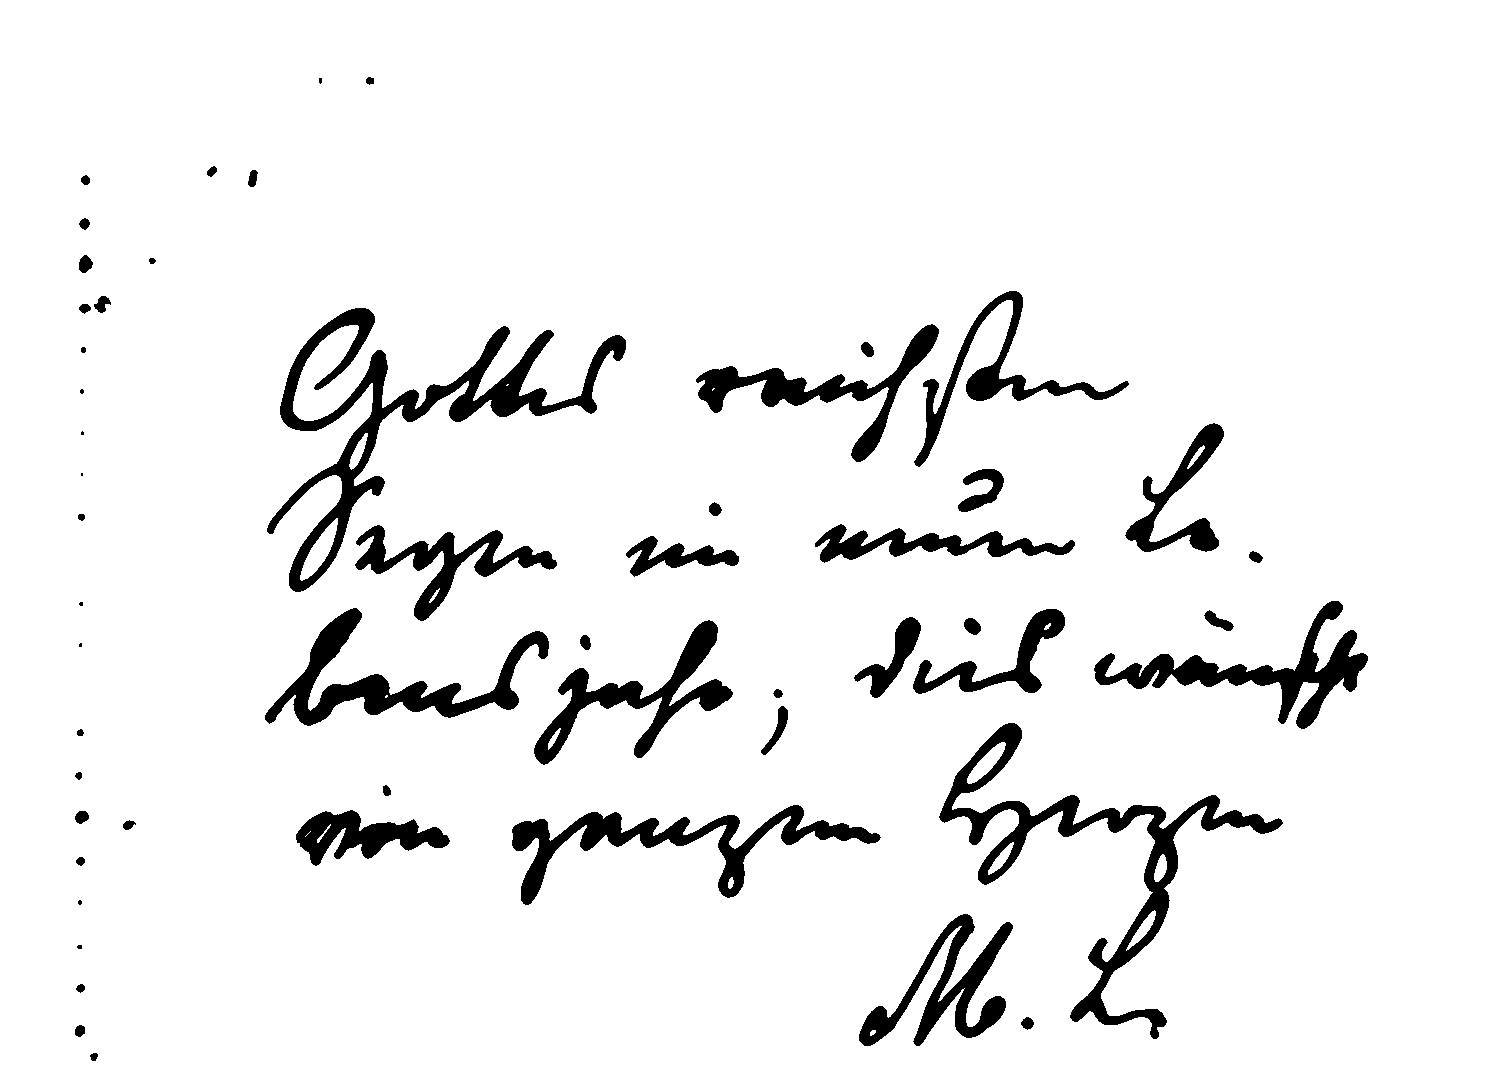 Gottes reichsten
Segen im neuen Le-
bensjahr; dies wünscht
von ganzem Herzen
M. L.